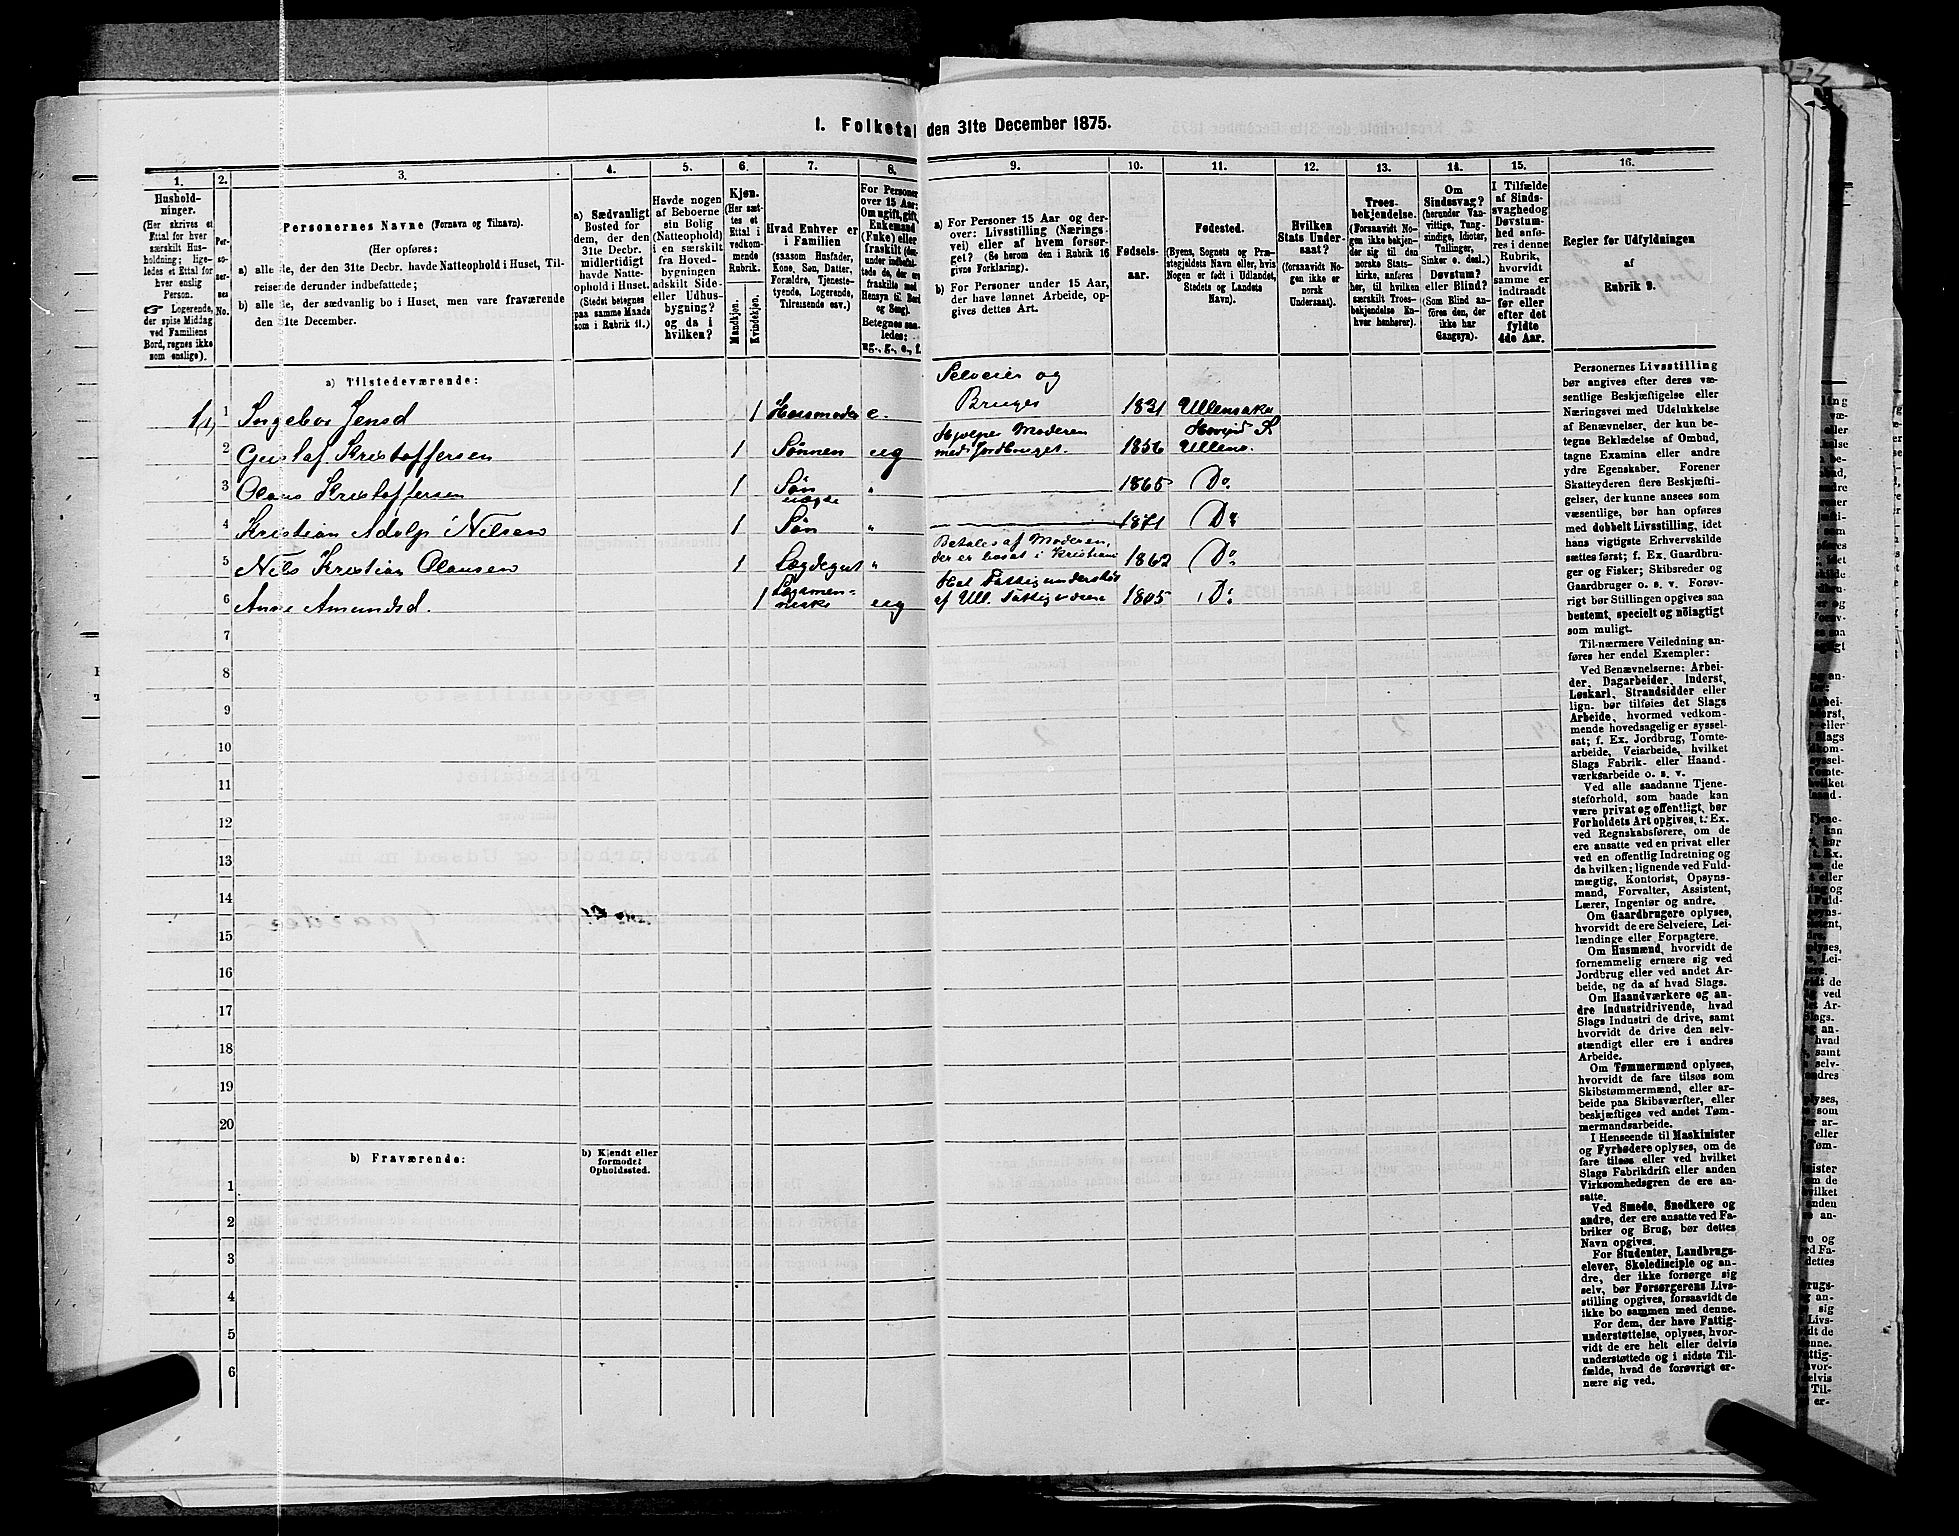 I. Folketal den 31te December 1875.
1.
Hushold-
ninger.
(Her skrives et
Ettal for hver
særskilt Hus-
holdning; lige-
ledes et Ettal for
hver enslig
Person.
Logerende,
der spise Middag
ved Familiens
Bord, regnes ikke
som enslige).
2.
Per-
so-
ner-
nes
No.
3.
Personernes Navne (Fornavn og Tilnavn).
(Her opføres:
a) alle de, der den 31te Decbr. havde Natteophold i Huset, Til-
reisende derunder indbefattede;
b) alle de, der sædvanlig bo i Huset, men vare fraværende
den 31te December.
4.
a) Sædvanligt
Bosted for
dem, der den
31te Decbr.
midlertidigt
havde Natte-
ophold i Huset.
(Stedet betegnes
paa samme Maade
som i Rubrik 11.)
5.
Havde nogen
af Beboerne
sin Bolig
(Natteophold)
i en særskilt
fra Hoved-
bygningen
adskilt Side-
eller Udhus-
bygning?
og da i
hvilken?
6.
Kjøn.
(Her sæt-
tes et
Ettal i
vedkom-
mende
Rubrik.
Mandkjøn.
Kvindekjøn.
7.
Hvad Enhver er
i Familien
(saasom Husfader,
Kone, Søn, Datter,
Forældre, Tjeneste-
tyende, Logerende,
Tilreisende osv.)
8.
For Personer
over 15 Aar:
Om ugift, gift,
Enkemand
(Enke) eller
fraskilt (der-
under indbefat-
tede de, der ere
fraskilte med
Hensyn til Bord
og Seng).
Betegnes saa-
ledes:
ug., g., e., f.
9.
a) For Personer 15 Aar og der-
over: Livsstilling (Nærings-
vei) eller af hvem forsør-
get. (Se herom den i Rubrik 16
givne Forklaring).
b) For Personer under 15 Aar,
der have lønnet Arbeide, op-
gives dettes Art.
10.
Fødsels-
aar.
11.
Fødested.
(Byens, Sognets og Præ-
stegjeldets Navn eller, hvis
Nogen er født i Udlandet,
Stedets og Landets
Navn).
12.
Hvilken
Stats Under-
saat?
(forsaavidt No-
gen ikke er
norsk
Undersaat).
13.
Troes-
bekjendelse.
(Forsaavidt No-
gen ikke bekjen-
der sig til den
norske Stats-
kirke, anføres
her, til hvilken
særskilt Troes-
bekjendelse En-
hver henhører).
14.
Om
Sindssvag?
(herunder Van-
vittige, Tung-
sindige, Idioter,
Tullinger,
Sinker o. desl.)
Døvstum?
eller Blind?
(Som Blind an-
føres den, der
ikke har
Gangsyn).
15.
I Tilfælde
af Sinds-
svaghed og
Døvstum-
hed anfø-
res i denne
Rubrik,
hvorvidt
samme er
indtraadt
før eller
efter det
fyldte
4de Aar.
16.
Regler for Udfyldningen
af
Rubrik 9.
a) Tilstedeværende:
1 Ingebor Jensd 1 Husmoder e. Selveier og Bruger 1821 Ullensaker
2 Gustaf Kristoffersen 1 Sønnen ug Hjelper Moderen med Jordbruget. 1856 Ullens.
3 Olaus Kristoffersen 1 Søn " 1865 Do
4 Kristian Adolp Nilsen 1 uægte Søn " 1871 Do
5 Nils Kristian Olausen 1 Lægdegut " Betales af Moderen, der er bosat i Kristiani 1862 Do
6 Anne Amundsd. 1 Lægsmenneske ug Hel Fattigunderstøt af Ull. Fattigvæsen 1805 Do
7
8
9
10
11
12
13
14
15
16
17
18
19
20
b) Fraværende:
b) Kjendt eller
formodet
Opholdssted.
1
2
3
4
5
6
Personernes Livsstilling
bør angives efter deres væ-
sentlige Beskjæftigelse eller
Næringsvei med Udelukkelse
af Benævnelser, der kun be-
tegne Beklædelse af Ombud,
tagne Examina eller andre
ydre Egenskaber. Forener
Skatteyderen flere Beskjæfti-
gelser, der kunne ansees som
væsentlige, bør han opføres
med dobbelt Livsstilling, idet
hans vigtigste Erhvervskilde
sættes først; f. Ex. Gaardbru-
ger og Fisker; Skibsreder og
Gaardbruger o. s. v. Forøv-
rigt bør Stillingen opgives saa
bestemt, specielt og nøiagtigt
som muligt.
Til nærmere Veiledning an-
føres her endel Exempler:
Ved Benævnelserne: Arbei-
der, Dagarbeider, Inderst,
Løskarl, Strandsidder eller
lign. bør tilføies det Slags
Arbeide, hvormed vedkom-
mende hovedsagelig er syssel-
sat; f. Ex. Jordbrug, Tomte-
arbeide, Veiarbeide, hvilket
Slags Fabrik- eller Haand-
værksarbeide o. s. v.
Ved alle saadanne Tjene-
steforhold, som baade kan
være privat og offentligt, bør
Forholdets Art opgives, t. Ex.
ved Regnskabsførere, om de
ere ansatte ved en privat eller
ved en offentlig Indretning og
da hvilken; lignende ved Fuld-
mægtig, Kontorist, Opsyns-
mand, Forvalter, Assistent,
Lærer, Ingeniør og andre.
Om Gaardbrugere oplyses,
hvorvidt de ere Selveiere, Lei-
lændinge eller Forpagtere.
Om Husmænd, hvorvidt de
fornemmelig ernære sig ved
Jordbrug eller ved andet Ar-
beide, og da af hvad Slags.
Om Haandværkere og an-
dre Industridrivende, hvad
Slags Industri de drive, samt
hvorvidt de drive den selv-
stændigt eller ere i andres
Arbeide.
Om Tømmermænd oplyses,
hvorvidt de fare tilsøs som
Skibstømmermænd, eller ar-
beide paa Skibsværfter, eller
beskjæftiges ved andet Tøm-
mermandsarbeide.
I Henseende til Maskinister
og Fyrbødere oplyses, om de
fare tilsøs eller ved hvilket
Slags Fabrikdrift eller anden
Virksomhed­sgren de ere an-
satte.
Ved Smede, Snedkere og
andre, der ere ansatte ved Fa-
briker og Brug, bør dettes
Navn opgives.
For Studenter, Landbrugs-
elever, Skoledisciple og an-
dre, der ikke forsørge sig
selv, bør Forsørgerens Livs-
stilling opgives, forsaavidt de
ikke bo sammen med denne.
For dem, der have Fattig-
understøttelse, oplyses, hvor-
vidt de ere helt eller delvis
understøttede og i sidste Til-
fælde, hvad de forøvrigt er-
nære sig ved.